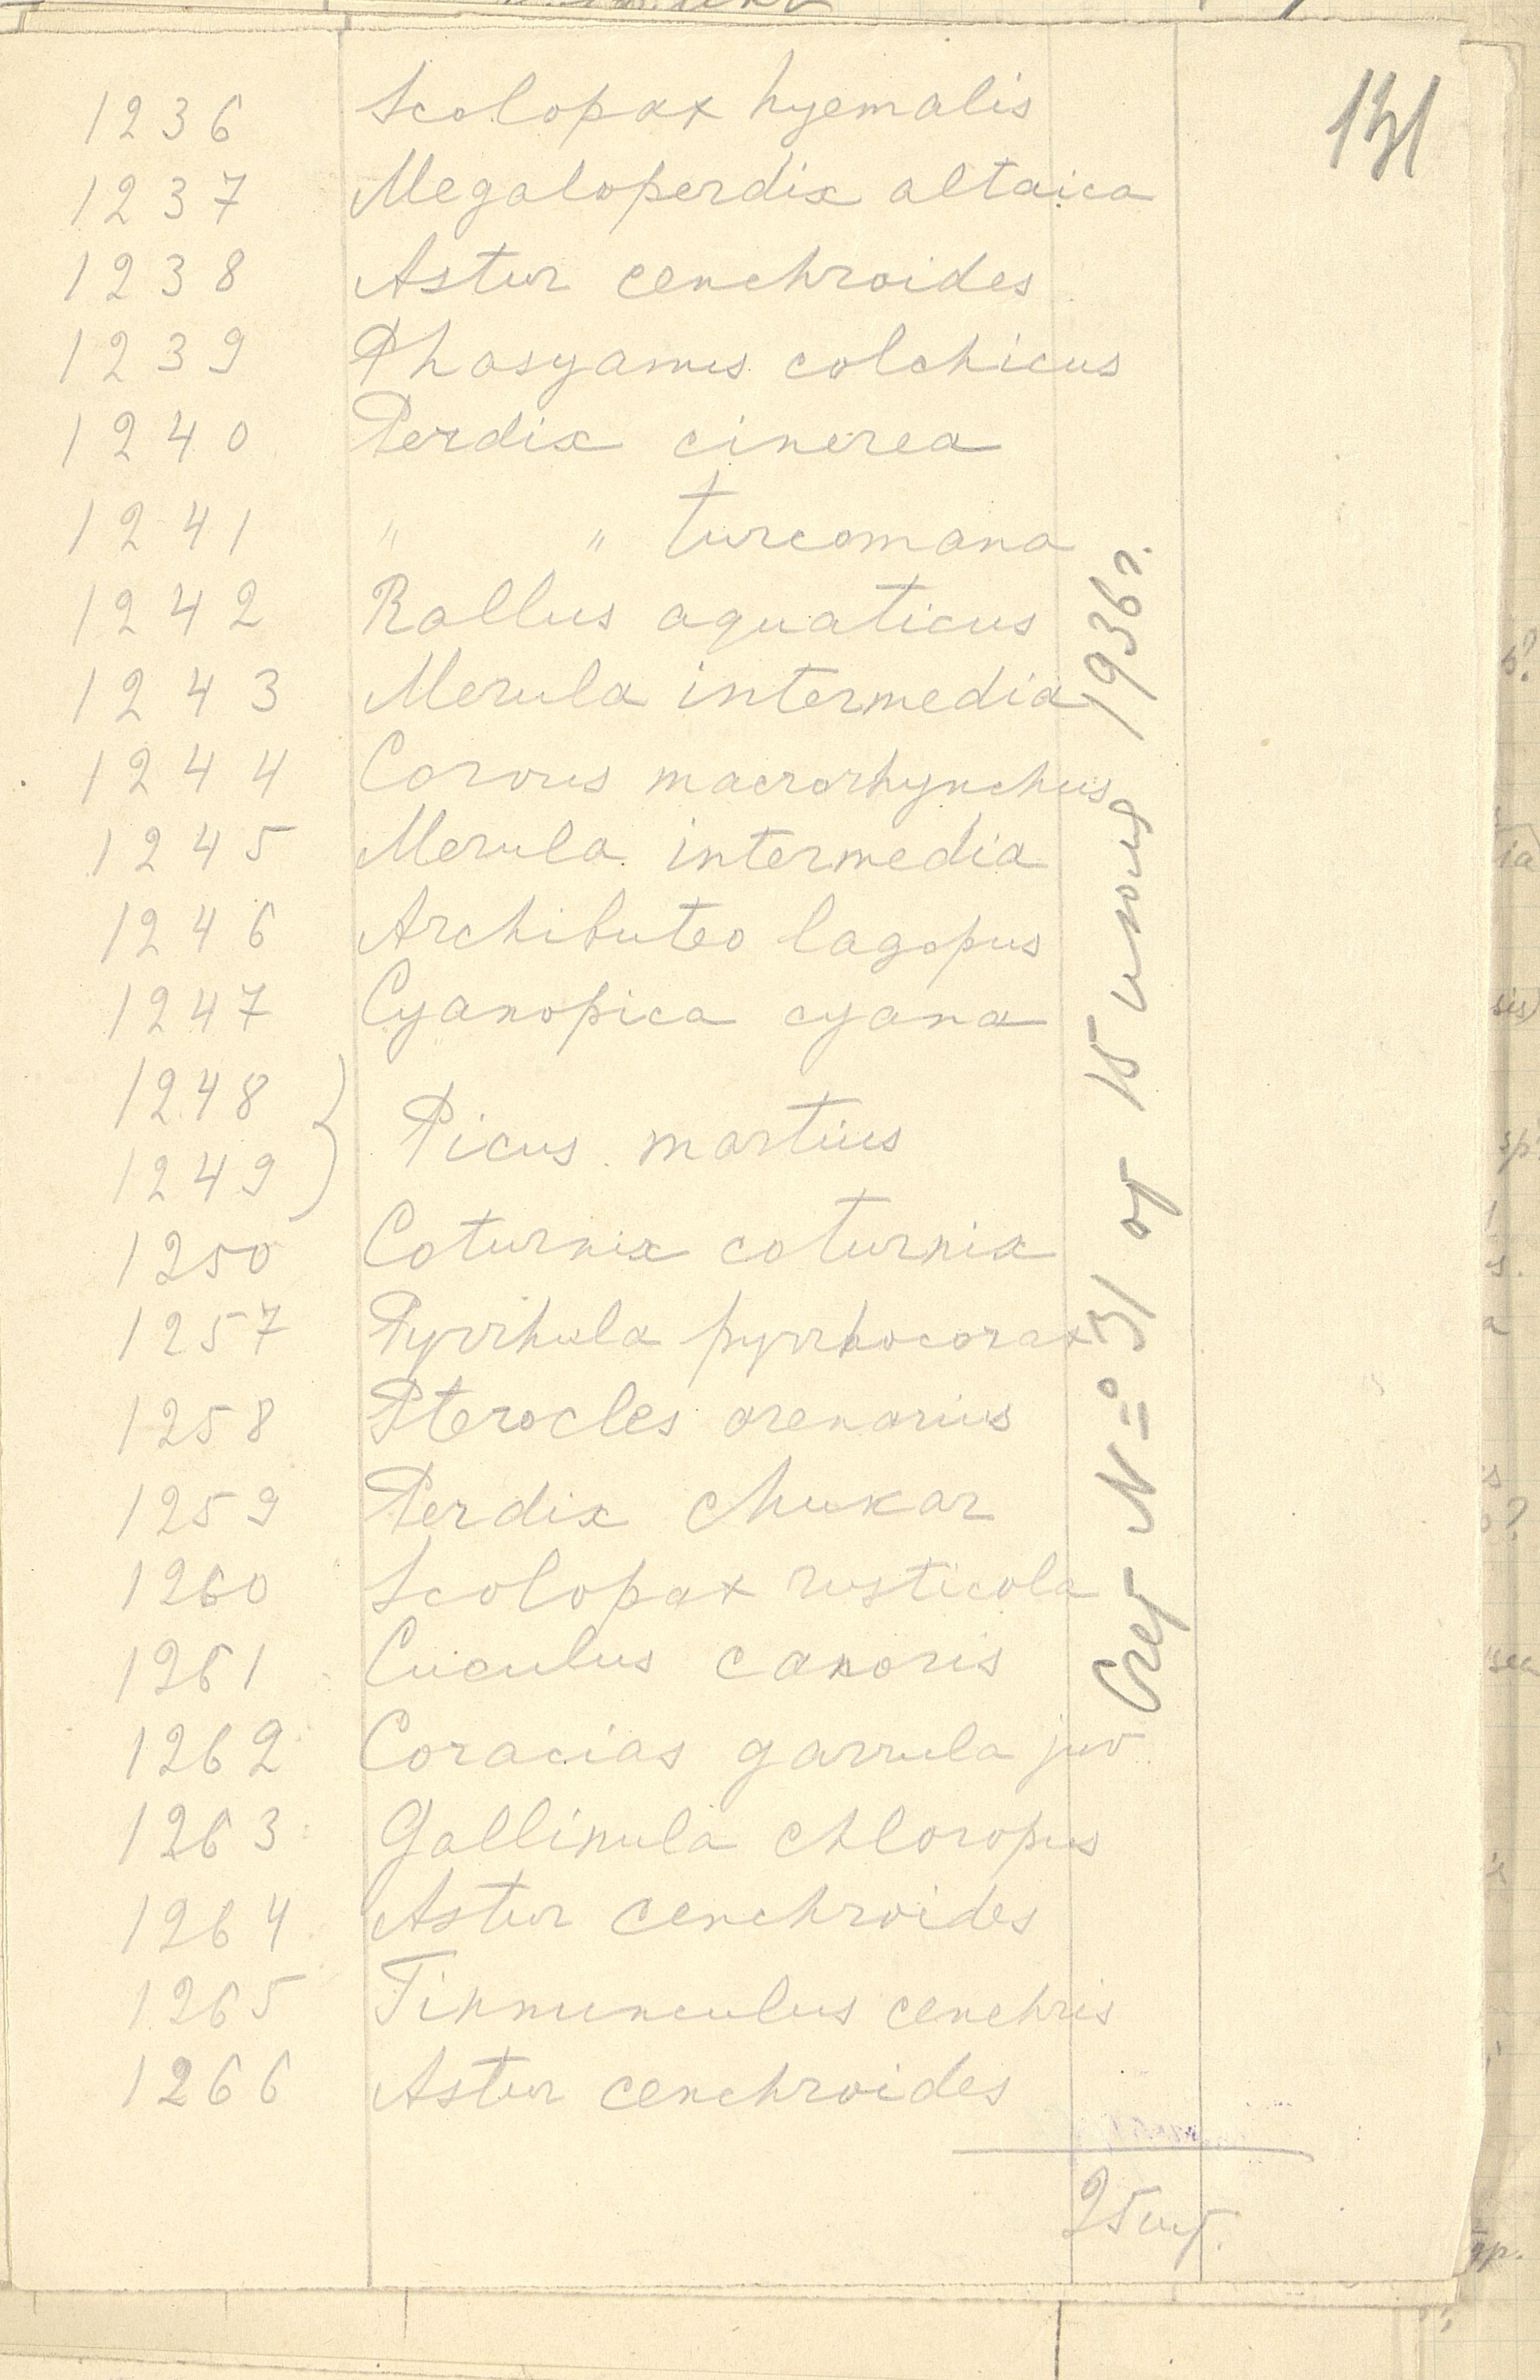 131
1236 Scolopax hyemalis
1237 Megaloperdix altaica
1238 Astur cenchroides
1239 Phasyanus colchicus
1240 Perdix cinerea
1241 " " turcomana
1242 Rallus aquaticus
1243 Merula intermedia
1244 Corvus macrorhynchus
1245 Merula intermedia
1246 Archibuteo lagopus
1247 Cyanopica cyana
1248
1249 } Picus martius
1250 Coturnix coturnix
1257 Pyrrhula pyrrhocorax
1258 Pterocles arenarius
1259 Perdix chukar
1260 Scolopax rusticola
1261 Cuculus canoris
1262 Coracias garrula juv
1263 Gallinula chloropus
1264 Astur cenchroides
1265 Tinnunculus cenchris
1266 Astur cenchroides
Счет № 31 от 15 июня 1936 г.
25 шт.